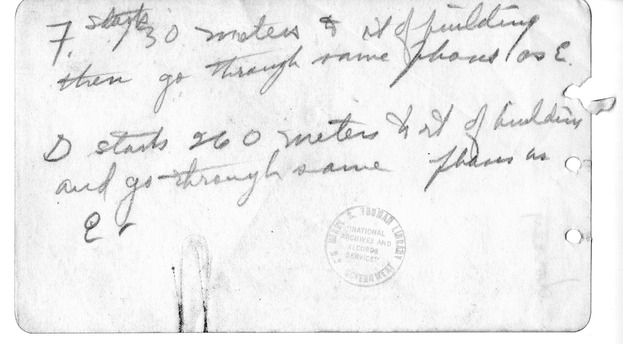 F. starts 130 meters to rt of building
then go through same phases as E.
D starts 260 meters to rt of building
and go through same phases as
E.
HARRY S. TRUMAN LIBRARY
NATIONAL
ARCHIVES AND
RECORDS
SERVICE
U.S. GOVERNMENT